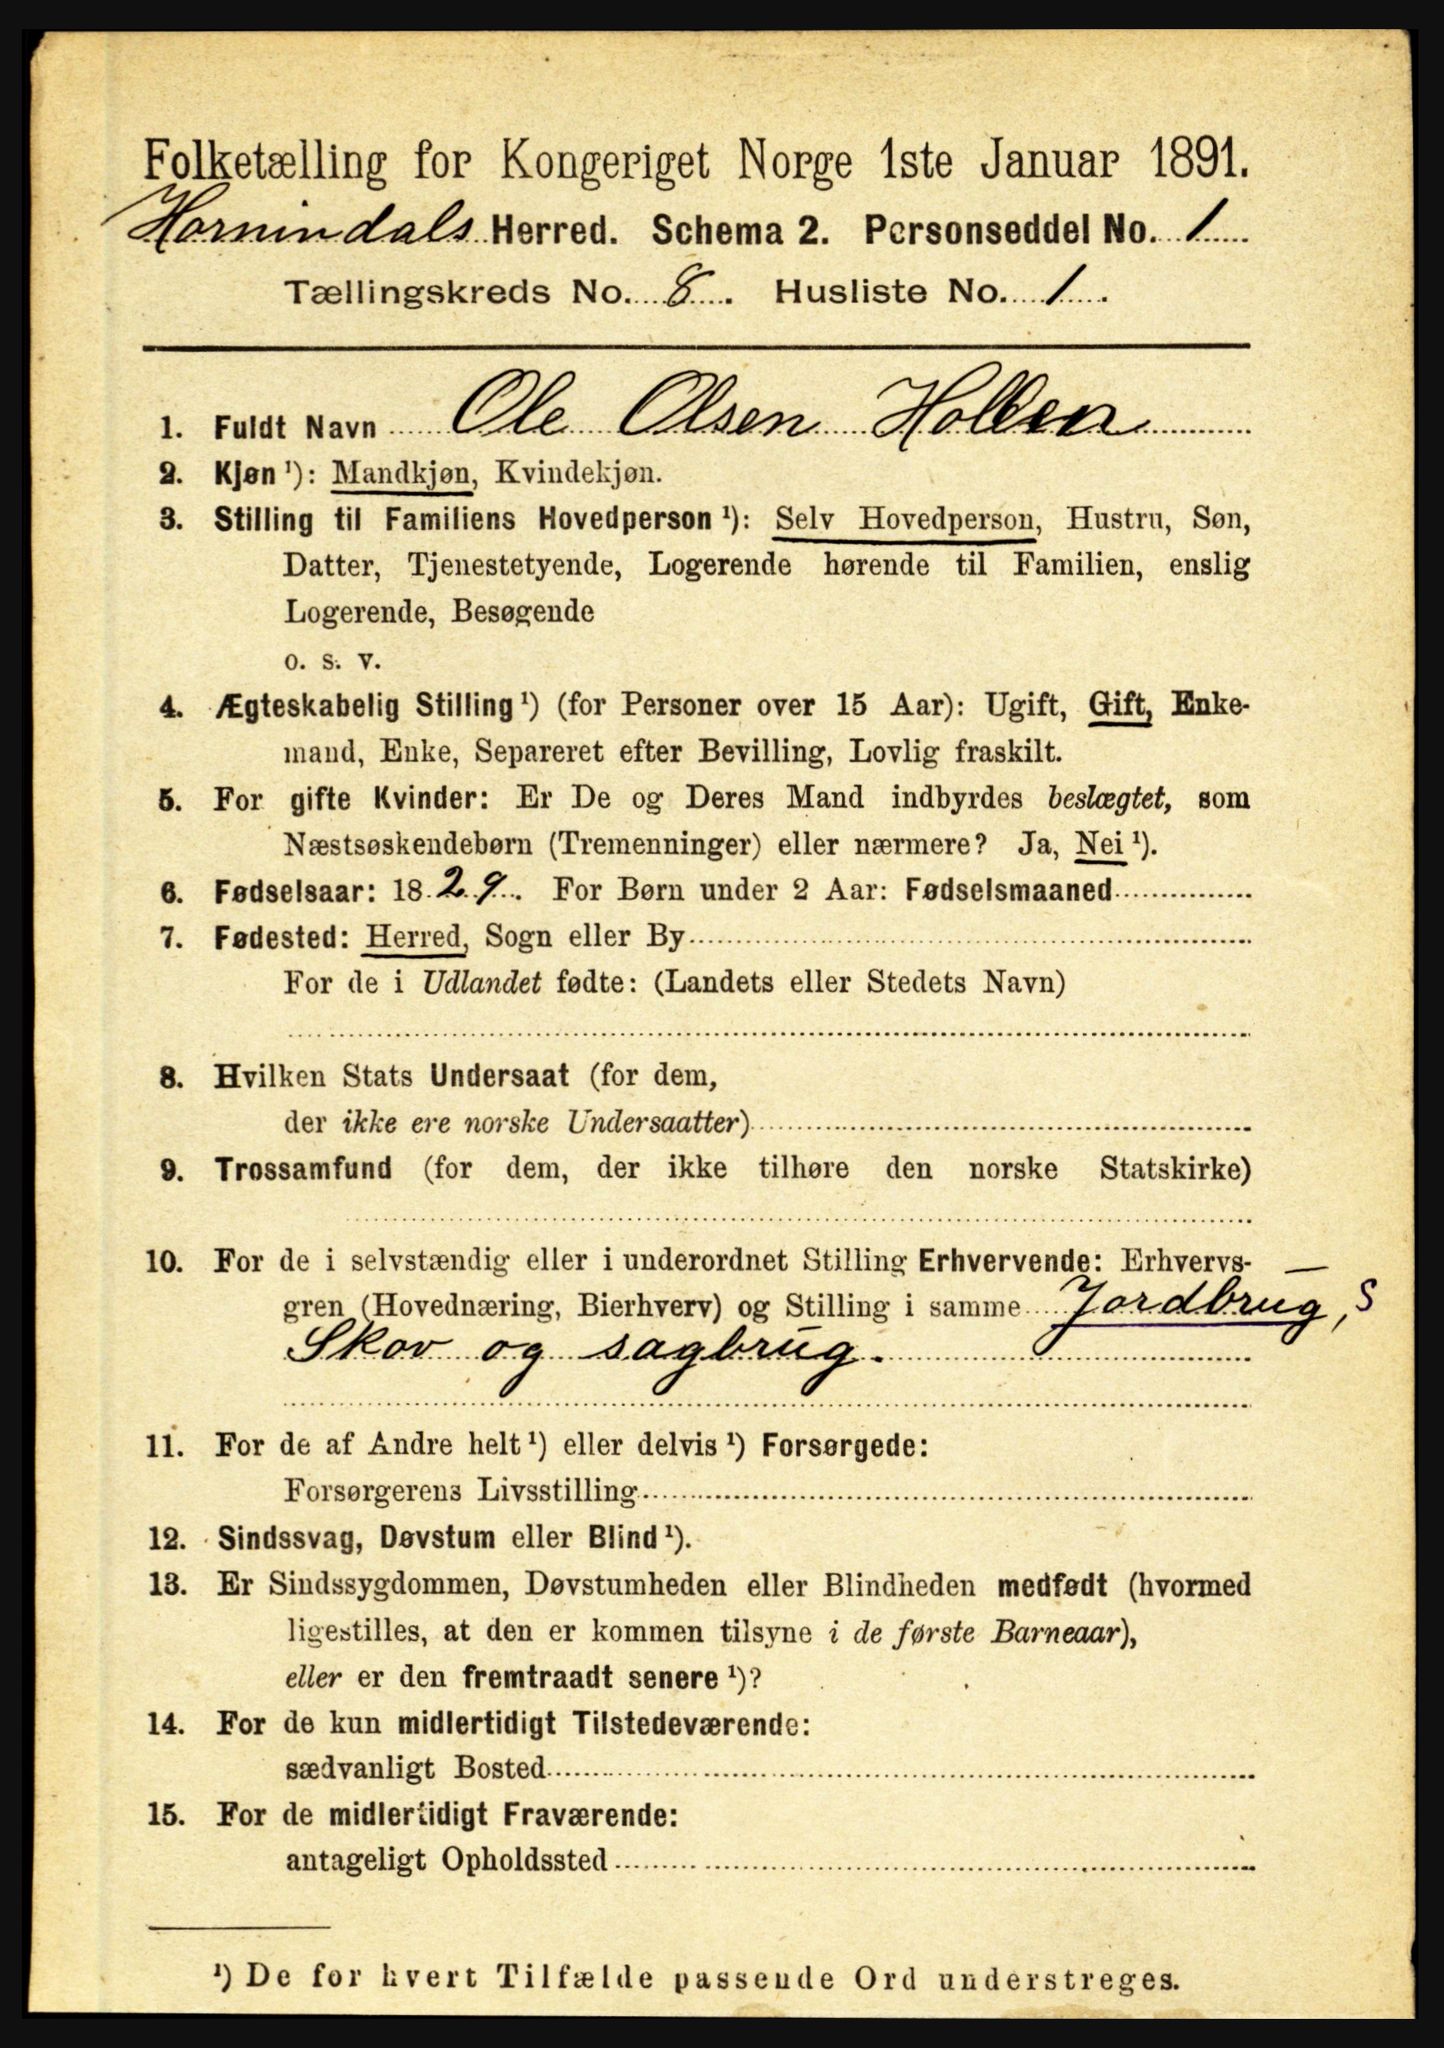 Folketælling for Kongeriget Norge 1ste Januar 1891.
Hornindals Herred. Schema 2. Personseddel No. 1
Tællingskreds No. 8. Husliste No. 1.
1. Fuldt Navn Ole Olsen
2. Kjøn ¹): Mandkjøn, Kvindekjøn.
3. Stilling til Familiens Hovedperson ¹): Selv Hovedperson, Hustru, Søn,
Datter, Tjenestetyende, Logerende hørende til Familien, enslig
Logerende, Besøgende
o. s. v.
4. Ægteskabelig Stilling ¹) (for Personer over 15 Aar): Ugift, Gift, Enke-
mand, Enke, Separeret efter Bevilling, Lovlig fraskilt.
5. For gifte Kvinder: Er De og Deres Mand indbyrdes beslægtet, som
Næstsøskendebørn (Tremenninger) eller nærmere? Ja, Nei ¹).
6. Fødselsaar: 1829. For Børn under 2 Aar: Fødselsmaaned
7. Fødested: Herred, Sogn eller By
For de i Udlandet fødte: (Landets eller Stedets Navn)
8. Hvilken Stats Undersaat (for dem,
der ikke ere norske Undersaatter)
9. Trossamfund (for dem, der ikke tilhøre den norske Statskirke)
10. For de i selvstændig eller i underordnet Stilling Erhvervende: Erhvervs-
gren (Hovednæring, Bierhverv) og Stilling i samme Jordbrug, S
Skov og sagbrug.
11. For de af Andre helt ¹) eller delvis ¹) Forsørgede:
Forsørgerens Livsstilling
12. Sindssvag, Døvstum eller Blind ¹).
13. Er Sindssygdommen, Døvstumheden eller Blindheden medfødt (hvormed
ligestilles, at den er kommen tilsyne i de første Barneaar),
eller er den fremtraadt senere ¹)?
14. For de kun midlertidigt Tilstedeværende:
sædvanligt Bosted
15. For de midlertidigt Fraværende:
antageligt Opholdssted
¹) De for hvert Tilfælde passende Ord understreges.